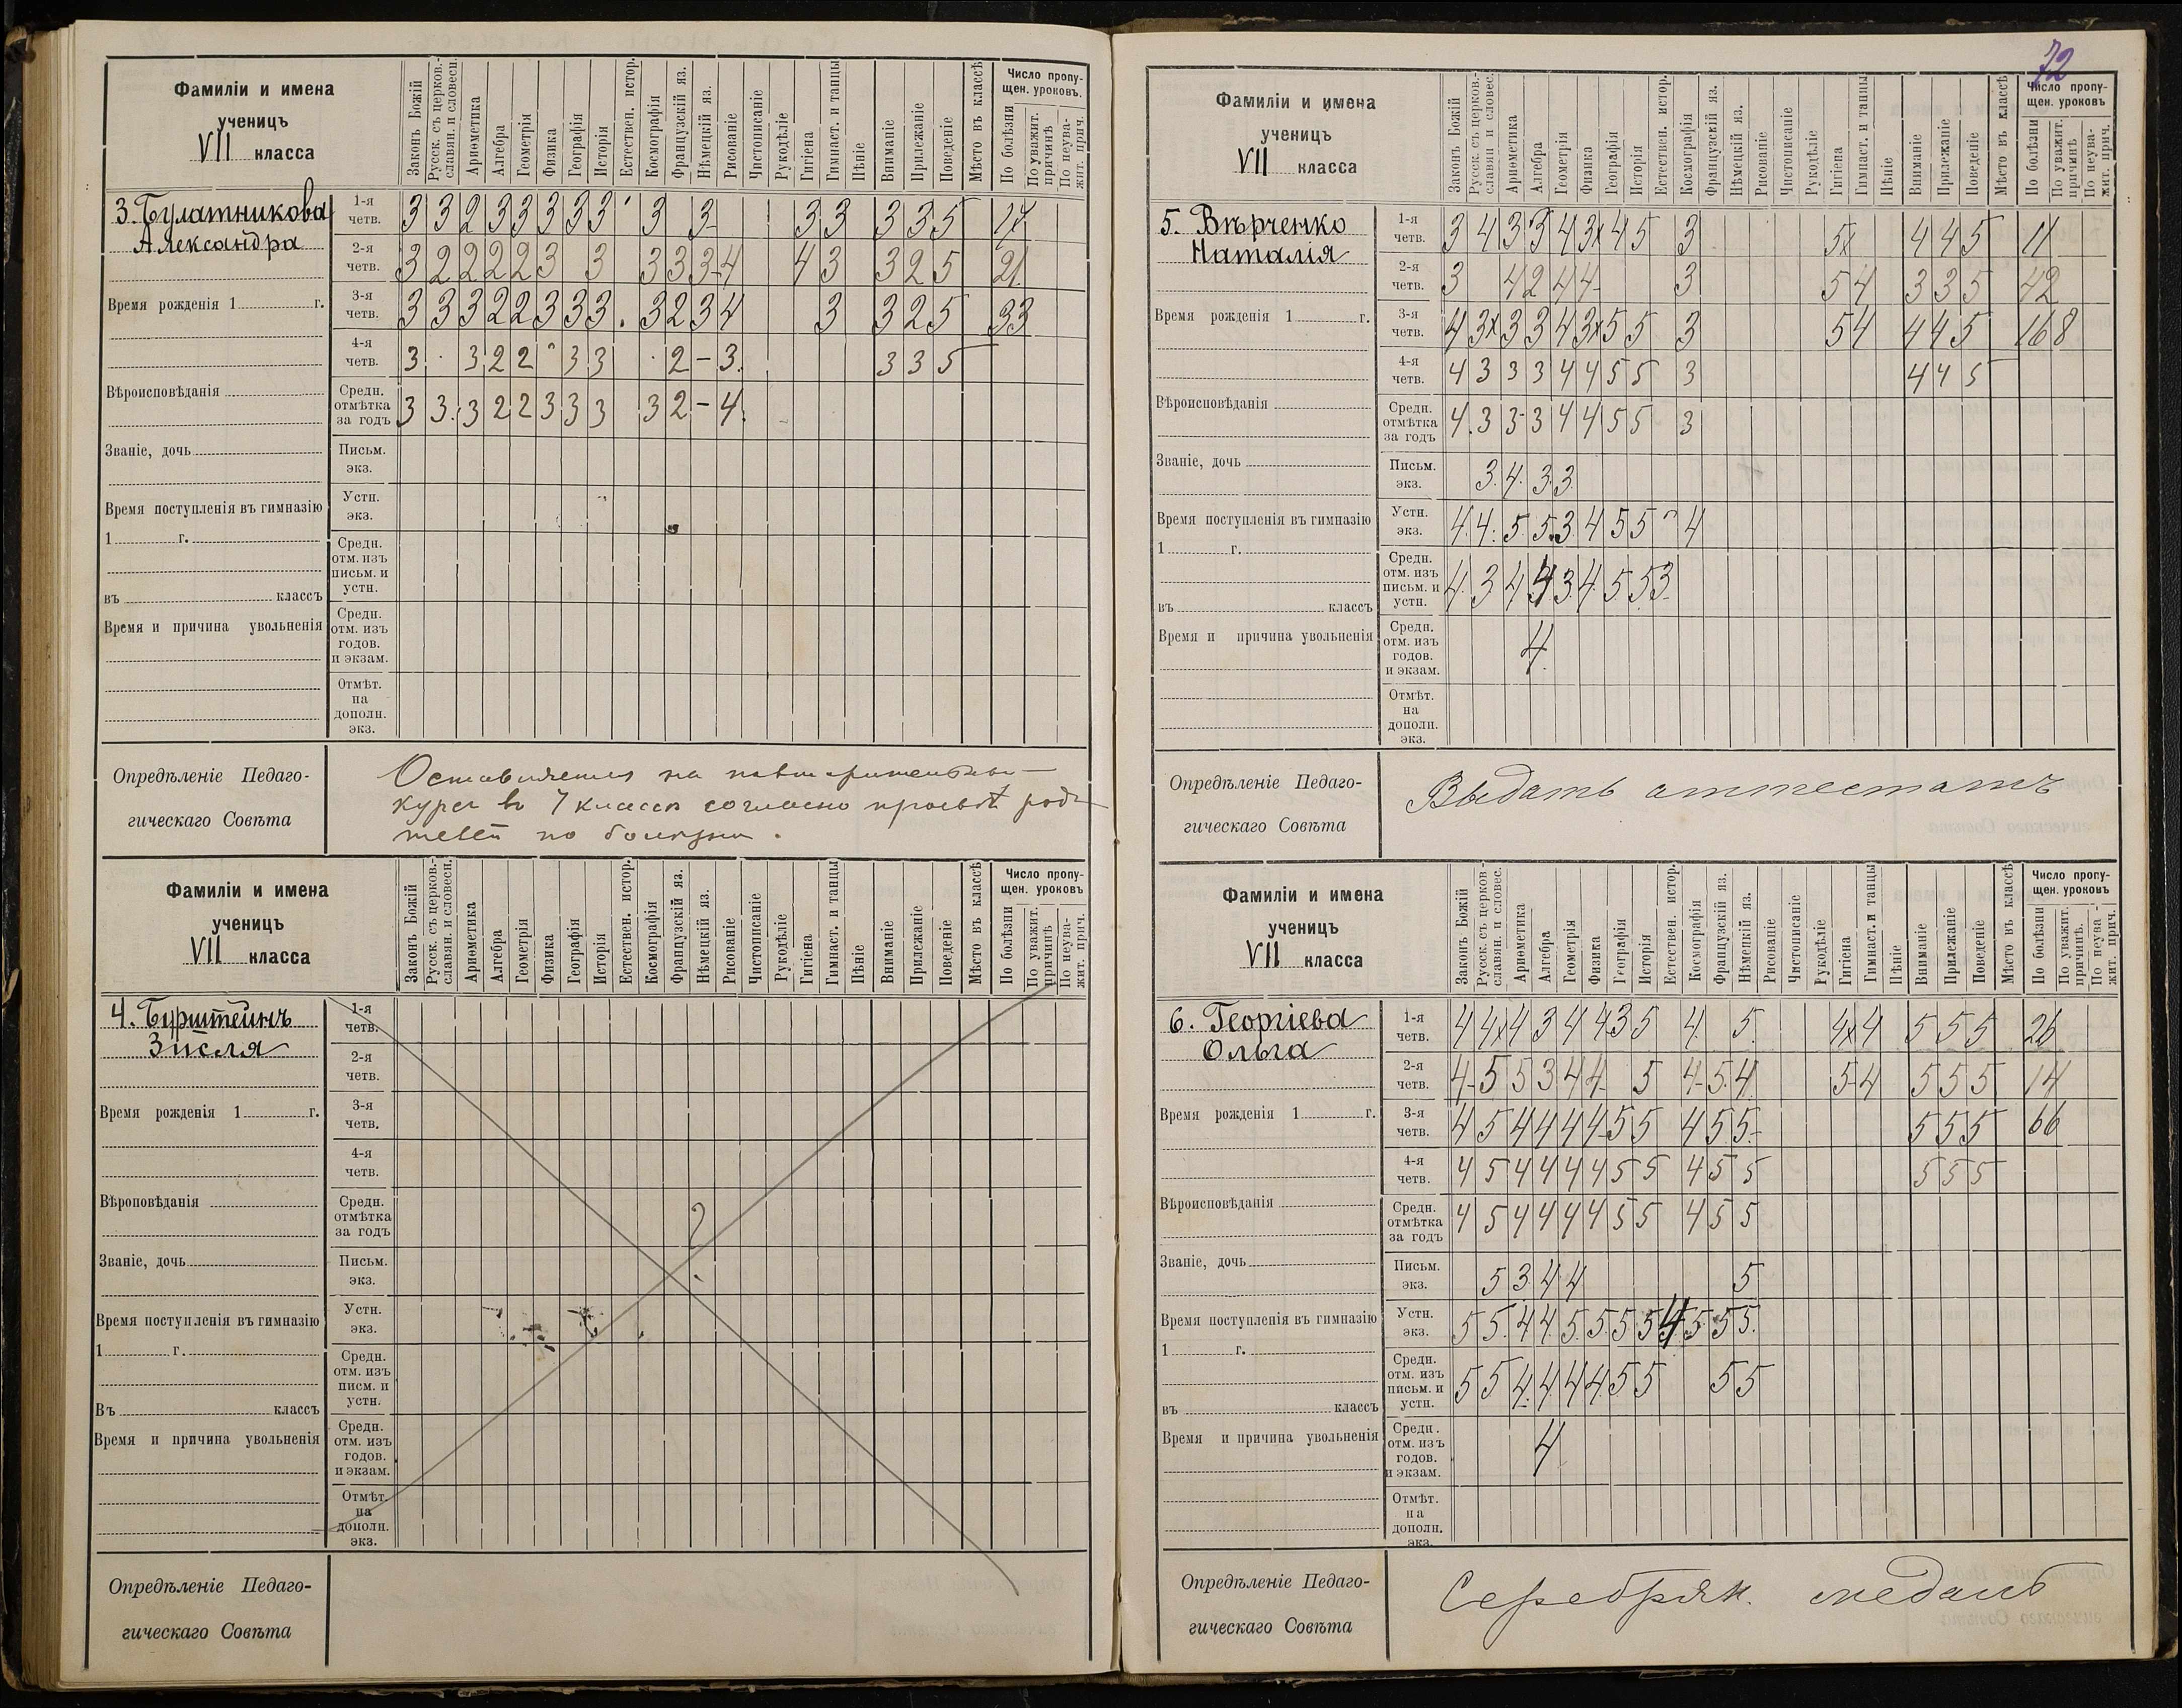 Фамиліи и имена
ученицъ
VII класса
Законъ Божій
Русск. съ церков.-
славян. и словесн.
Ариѳметика
Алгебра
Геометрія
Физика
Географія
Исторія
Естествен. истор.
Космографія
Французскій яз.
Нѣмецкій яз.
Рисованіе
Чистописаніе
Рукодѣліе
Гигіена
Гимнаст. и танцы
Пѣніе
Вниманіе
Прилежаніе
Поведеніе
Мѣсто въ классѣ
Число пропу-
щен. уроковъ.
По болѣзни
По уважит.
причинѣ
По неува-
жит. прич.
3. Булатникова
Александра
Время рожденія 1 г.
Вѣроисповѣданія
Званіе, дочь
Время поступленія въ гимназію
1 г.
въ классъ
Время и причина увольненія
1-я четв. 3 3 2 3 3 3 3 3 3 3 3 3 3 3 5
2-я четв. 3 2 2 2 2 3 3 3 3 3 4 4 3 3 2 5 21
3-я четв. 3 3 3 2 2 3 3 3 3 2 3 4 3 3 2 5 33
4-я четв. 3 3 2 2 3 3 2 – 3 3 3 5
Средн. отмѣтка за годъ 3 3 3 2 2 3 3 3 3 2 – 4
Письм. экз.
Устн. экз.
Средн. отм. изъ письм. и устн.
Средн. отм. изъ годов. и экзам.
Отмѣт. на дополн. экз.
Опредѣленіе Педаго-
гическаго Совѣта
Оставляется на повторительный
курсъ въ 7 классѣ согласно просьбѣ роди
телей по болѣзни.
Фамиліи и имена
ученицъ
VII класса
Законъ Божій
Русск. съ церков.-
славян. и словесн.
Ариѳметика
Алгебра
Геометрія
Физика
Географія
Исторія
Естествен. истор.
Космографія
Французскій яз.
Нѣмецкій яз.
Рисованіе
Чистописаніе
Рукодѣліе
Гигіена
Гимнаст. и танцы
Пѣніе
Вниманіе
Прилежаніе
Поведеніе
Мѣсто въ классѣ
Число пропу-
щен. уроковъ
По болѣзни
По уважит.
причинѣ
По неува-
жит. прич.
4. Бурштейнъ
Зисля
Время рожденія 1 г.
Вѣроповѣданія
Званіе, дочь
Время поступленія въ гимназію
1 г.
Въ классъ
Время и причина увольненія
1-я четв.
2-я четв.
3-я четв.
4-я четв.
Средн. отмѣтка за годъ ?
Письм. экз.
Устн. экз.
Средн. отм. изъ писм. и устн.
Средн. отм. изъ годов. и экзам.
Отмѣт. на дополн. экз.
Опредѣленіе Педаго-
гическаго Совѣта
72
Фамиліи и имена
ученицъ
VII класса
Законъ Божій
Русск. съ церков.-
славян и словес.
Ариѳметика
Алгебра
Геометрія
Физика
Географія
Исторія
Естествен. истор.
Космографія
Французскій яз.
Нѣмецкій яз.
Рисованіе
Чистописаніе
Рукодѣліе
Гигіена
Гимнаст. и танцы
Пѣніе
Вниманіе
Прилежаніе
Поведеніе
Мѣсто въ классѣ
Число пропу-
щен. уроковъ
По болѣзни
По уважит.
причинѣ
По неува-
жит. прич.
5. Вѣрченко
Наталія
Время рожденія 1 г.
Вѣроисповѣданія
Званіе, дочь
Время поступленія въ гимназію
1 г.
въ классъ
Время и причина увольненія
1-я четв. 3 4 3 3 4 3x 4 5 3 5x 4 4 5 11
2-я четв. 3 4 2 4 4 3 5 4 3 3 5 42
3-я четв. 4 3x 3 3 4 3x 5 5 3 5 4 4 4 5 168
4-я четв. 4 3 3 3 4 4 5 5 3 4 4 5
Средн. отмѣтка за годъ 4 3 3 3 4 4 5 5 3
Письм. экз. 3 4 3 3
Устн. экз. 4 4 5 5 3 4 5 5 4
Средн. отм. изъ письм. и устн. 4 3 4 4 3 4 5 5 3
Средн. отм. изъ годов. и экзам. 4
Отмѣт. на дополн. экз.
Опредѣленіе Педаго-
гическаго Совѣта
Выдать аттестатъ
Фамиліи и имена
ученицъ
VII класса
Законъ Божій
Русск. съ церков-
славян. и словес.
Ариѳметика
Алгебра
Геометрія
Физика
Географія
Исторія
Естествен. истор.
Космографія
Французскій яз.
Нѣмецкій яз.
Рисованіе
Чистописаніе
Рукодѣліе
Гигіена
Гимнаст. и танцы
Пѣніе
Вниманіе
Прилежаніе
Поведеніе
Мѣсто въ классѣ
Число пропу-
щен. уроковъ
По болѣзни
По уважит.
причинѣ.
По неува-
жит. прич.
6. Георгіева
Ольга
Время рожденія 1 г.
Вѣроисповѣданія
Званіе, дочь
Время поступленія въ гимназію
1 г.
въ классъ
Время и причина увольненія
1-я четв. 4 4x 4 3 4 4 3 5 4 5 4x 4 5 5 5 26
2-я четв. 4 5 5 3 4 4 5 4 5 4 5 4 5 5 5 14
3-я четв. 4 5 4 4 4 4 5 5 4 5 5 5 5 5 66
4-я четв. 4 5 4 4 4 4 5 5 4 5 5 5 5 5
Средн. отмѣтка за годъ 4 5 4 4 4 4 5 5 4 5 5
Письм. экз. 5 3 4 4 5
Устн. экз. 5 5 4 4 5 5 5 5 4 5 5 5
Средн. отм. изъ письм. и устн. 5 5 4 4 4 4 5 5 5 5
Средн. отм. изъ годов. и экзам. 4
Отмѣт. на дополн. экз.
Опредѣленіе Педаго-
гическаго Совѣта
Серебрян. медаль